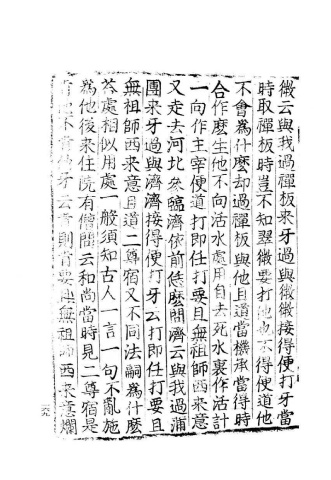 微云與我過禪板来牙過與微微接得便打牙當
時取禪板時豈不知翠微要打他也不得便道他
不會為什麼却過禪板與他且道當機承當得時
合作麼生他不向活水處用自去死水裏作活計
一向作主宰便道打即任打要且無祖師西来意
又走去河北參臨濟依前恁麼問濟云與我過蒲
團来牙過與濟濟接得便打牙云打即任打要且
無祖師西来意且道二尊宿又不同法嗣為什麼
荅處相似用處一般須知古人一言一句不亂施
為他後来住院有僧問云和尚當時見二尊宿是
肯他不肯他牙云肯則肯要且無祖師西来意爛